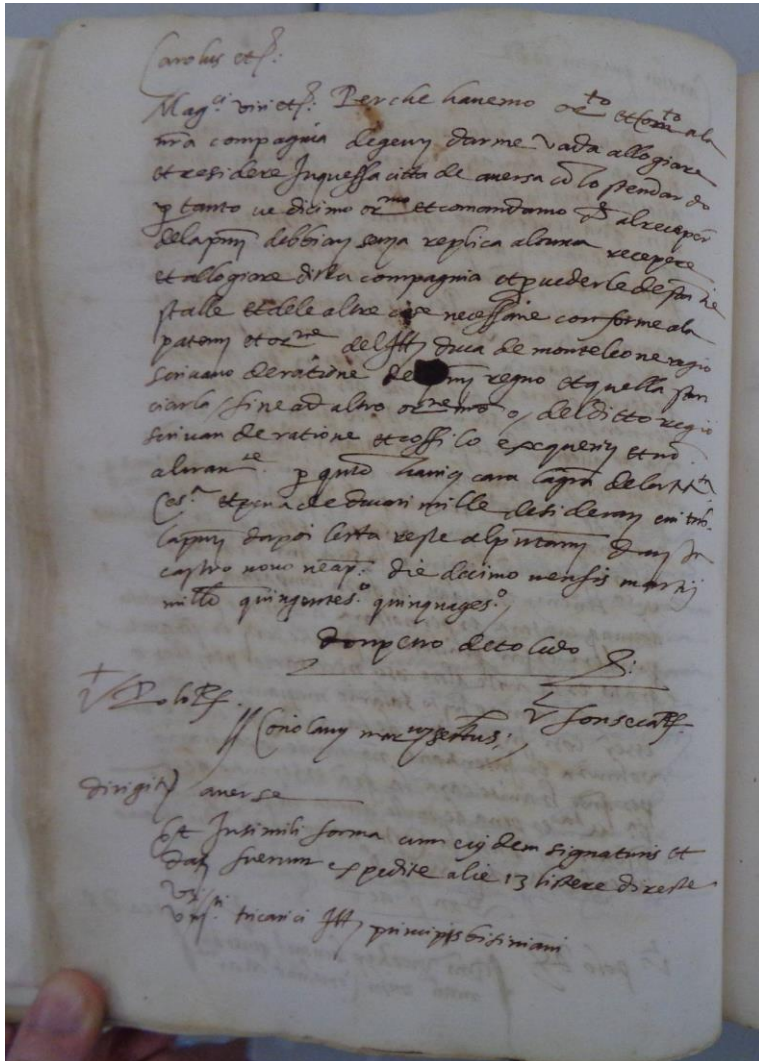 Carolus et c:
Mag.ci viri et c: Perche havemo or.to et con.to ala
nra compagnia de geny darme vada allogiare
et residere In quessa citta de aversa co lo stendardo
p tanto ve dicimo or.mo et comandamo che al recepere
dela pnti debbiay senza replica alcuna recepere
et allogiare ditta compagnia et pvederle de stantie
stalle et dele altre cose necessarie conforme ala
patenty et or.ne del Ill. duca de monteleone regio
scrivano de ratione de regno et quella
fine ad altro or.ne nro o del ditto regio
scrivan de ratione et cossi lo exequerity et no
altram.te p quanto haviti cara la gra dela
Ces.a et pena de ducati mille desideray evitare
la pnti dapoi letta reste al pntanty dat. In
castro novo neap. die decimo mensis martij
mill.o quingentes.o quinquages.o
don petro de toledo
V. Polo R.
V. fonseca R.
Coriolanus mar
dirigit.r averse
Et In simili forma cum eisdem signaturis et
dat. fuerunt expedite alie 13 littere directe
tricarici Ill. principis bisiniani